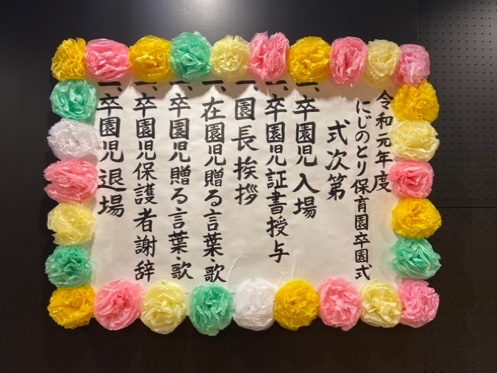 令和元年度
にじのとり保育園卒園式
式次第
一、卒園児入場
一、卒園児証書授与
一、園長挨拶
一、在園児贈る言葉・歌
一、卒園児贈る言葉・歌
一、卒園児保護者謝辞
一、卒園児退場